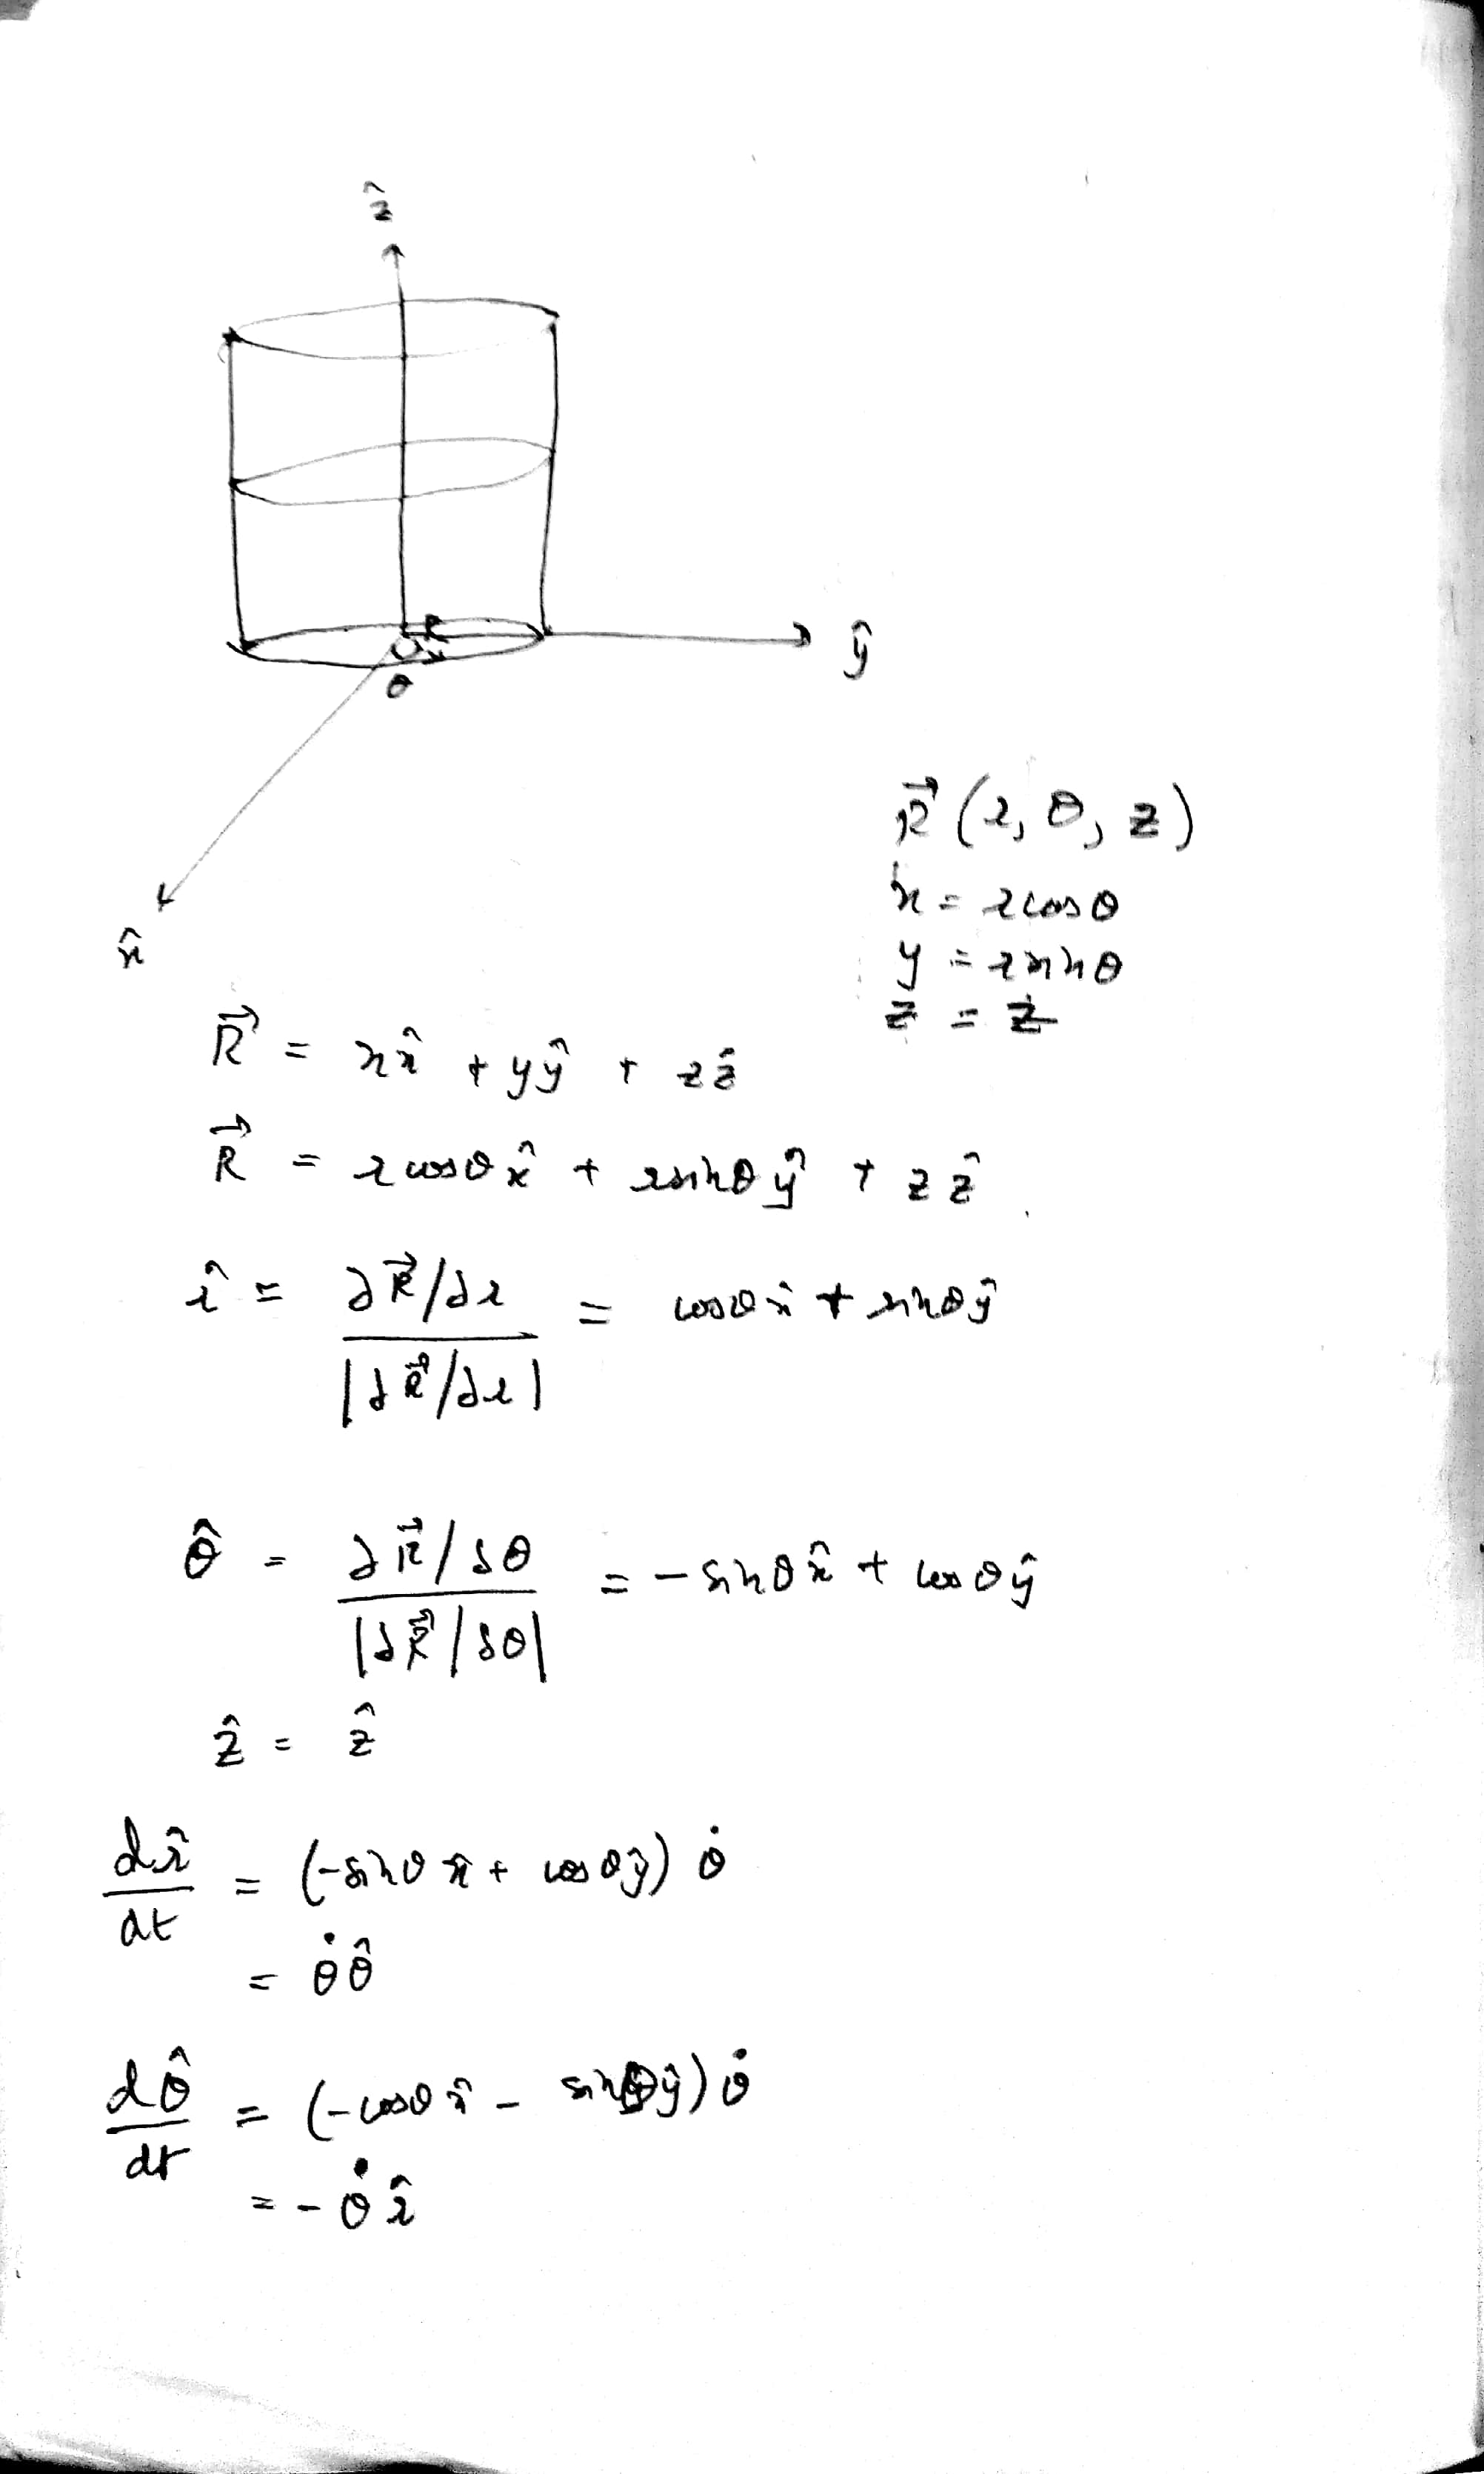 ẑ
R
ŷ
θ
x̂
R⃗ (r, θ, z)
x = r cos θ
y = r sin θ
z = z
R⃗ = x x̂ + y ŷ + z ẑ
R⃗ = r cos θ x̂ + r sin θ ŷ + z ẑ
r̂ = ∂R⃗/∂r / |∂R⃗/∂r| = cos θ x̂ + sin θ ŷ
θ̂ = ∂R⃗/∂θ / |∂R⃗/∂θ| = - sin θ x̂ + cos θ ŷ
ẑ = ẑ
dr̂/dt = (-sin θ x̂ + cos θ ŷ) θ̇
= θ̇ θ̂
dθ̂/dt = (-cos θ x̂ - sin θ ŷ) θ̇
= - θ̇ r̂